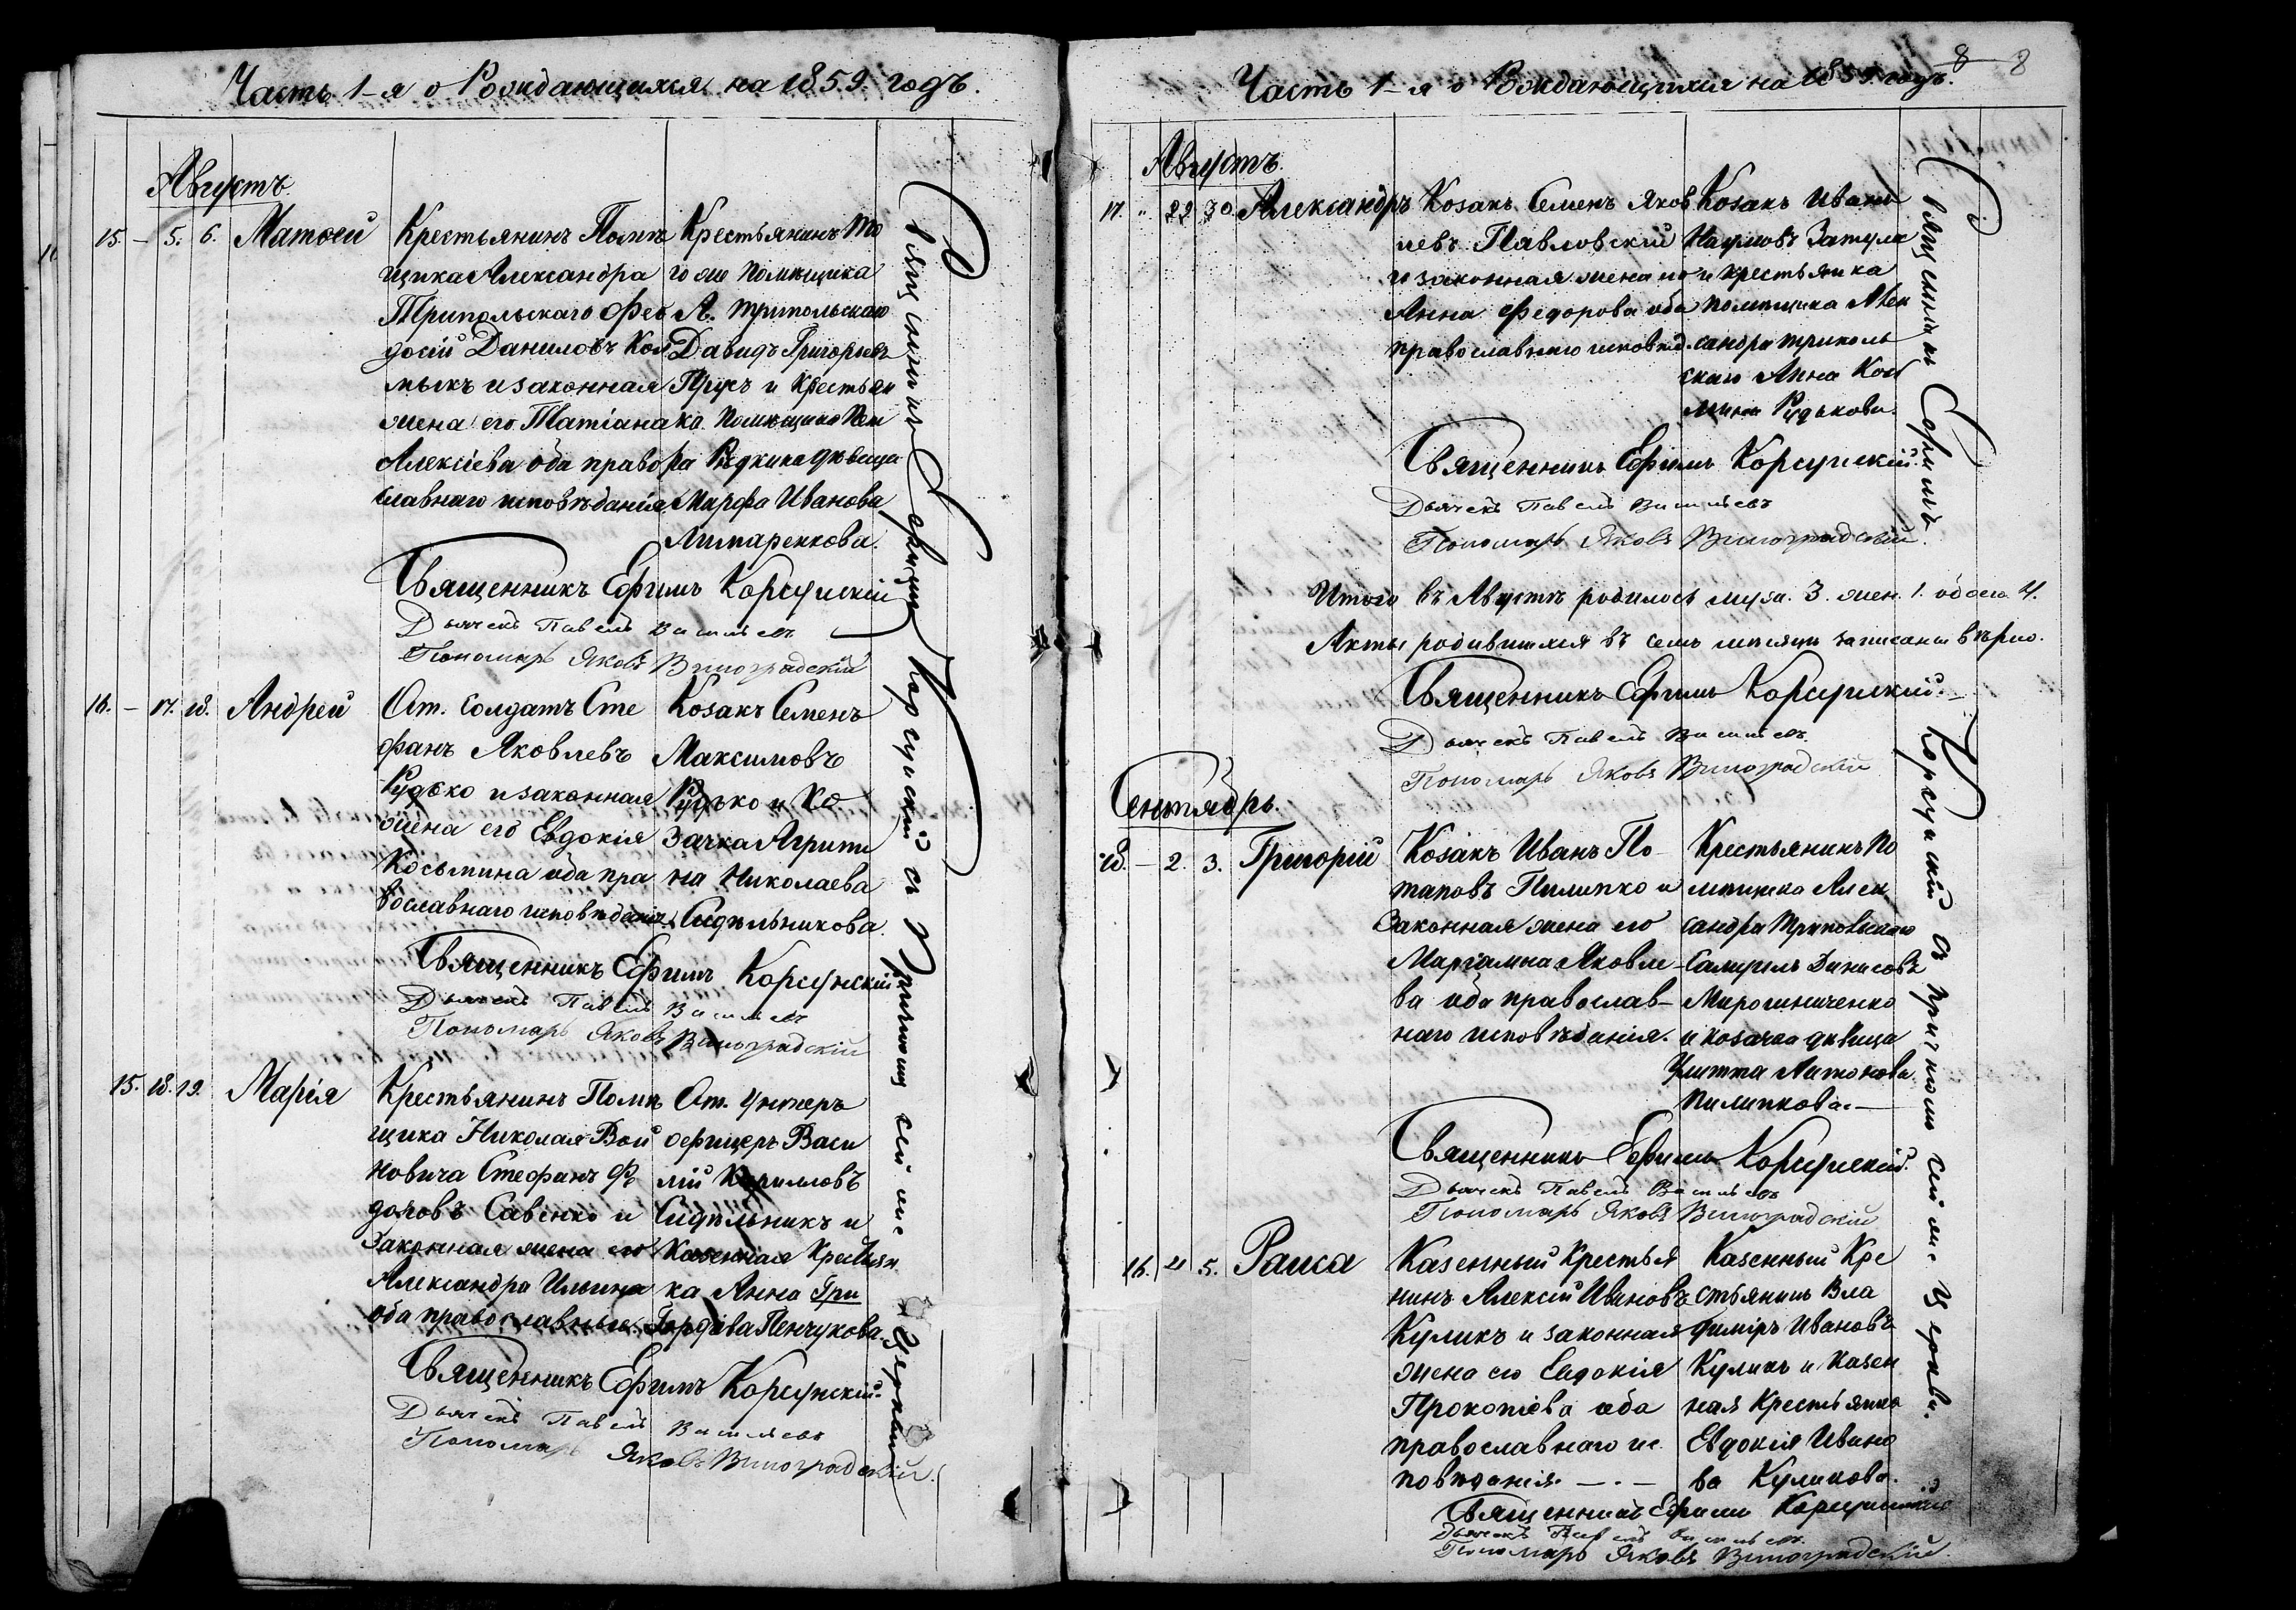 Часть 1-я о Рождающихся на 1859. годъ.
Августъ.
15. – 5. 6. Матѳей
Крестьянинъ Помѣ
щика Александра
Трипольскаго Ѳео
досій Даниловъ Кол
мыкъ и законная
жена его Татіана
Алексіева оба право
славнаго исповѣданія.
Крестьянинъ то
го же помѣщика
А. Трипольскаго
Давидъ Григорьевъ
и крестьян
ка помѣщика
дѣвица
Марфа Иванова
Лимаренкова.
Священникъ Ефимъ Корсунскій
Дьячекъ Павелъ Васильевъ
Пономарь Яковъ Виноградскій
16. – 17. 18. Андрей
От. солдатъ Сте
фанъ Яковлевъ
Рудько и законная
жена его Евдокія
Косьмина оба пра
вославнаго исповѣданія.
Козакъ Семенъ
Максимовъ
Рудько и Ко
зачка Агрипи
на Николаева
Сидѣльникова.
Священникъ Ефимъ Корсунскій
Дьячекъ Павелъ Васильевъ
Пономарь Яковъ Виноградскій
15. 18. 19. Марія
Крестьянинъ Помѣ
щика Николая Вой
новича Стефанъ Ѳе
доровъ Савенко и
законная жена его
Александра Ильина
оба православные.
От. унтеръ
офицеръ Васи
лій Кирилловъ
Сидѣльникъ и
Казенная Крестьян
ка Анна Гри
Гордіева Пенчукова.
Священникъ Ефимъ Корсунскій.
Дьячекъ Павелъ Васильевъ
Пономарь Яковъ Виноградскій.
Священникъ Ефимъ Корсунскій съ причтомъ сей же церкви
Часть 1-я о Рождающихся на 1859. годъ.
8 8
Августъ.
17. „ 29 30. Александръ
Козакъ Семенъ Яков
левъ Павловскій
и законная жена его
Анна Федорова оба
православнаго исповѣд.
Козакъ Иванъ
Наумовъ Затула
и крестьянка
помѣщика Алек
сандра Триполь
скаго Анна Кось
мина Рудькова.
Священникъ Ефимъ Корсунскій.
Дьячекъ Павелъ Васильевъ
Пономарь Яковъ Виноградскій.
Итого въ Августѣ родилось муж. 3. жен. 1. обоего 4.
Акты родившихся въ семъ мѣсяцѣ записаны вѣрно.
Священникъ Ефимъ Корсунскій.
Дьячекъ Павелъ Васильевъ.
Пономарь Яковъ Виноградскій
Сентябрь.
18. – 2. 3. Григорій
Козакъ Иванъ По
таповъ Пилипко и
Законная жена его
Маріамна Яковле
ва оба православ–
наго исповѣданія.
Крестьянинъ По
мѣщика Алек
сандра Трипольскаго
Самуилъ Денисовъ
Мирошниченко
и козачка дѣвица
Улитта Антонова
Пилипкова.–
Священникъ Ефимъ Корсунскій.
Дьячекъ Павелъ Васильевъ
Пономарь Яковъ Виноградскій
16. 4 5. Раиса
Казенный Крестья
нинъ Алексій Ивановъ
Куликъ и законная
жена его Евдокія
Прокопіева оба
православнаго ис
повѣданія. – . –
Казенный Кре
стьянинъ Вла
диміръ Ивановъ
Куликъ и казен
ная Крестьянка
Евдокія Ивано
ва Куликова.
Священникъ Ефимъ Корсунскій
Дьячекъ Павелъ Васильевъ.
Пономарь Яковъ Виноградскій.
Священникъ Ефимъ Корсунскій съ причтомъ сей же церкви.